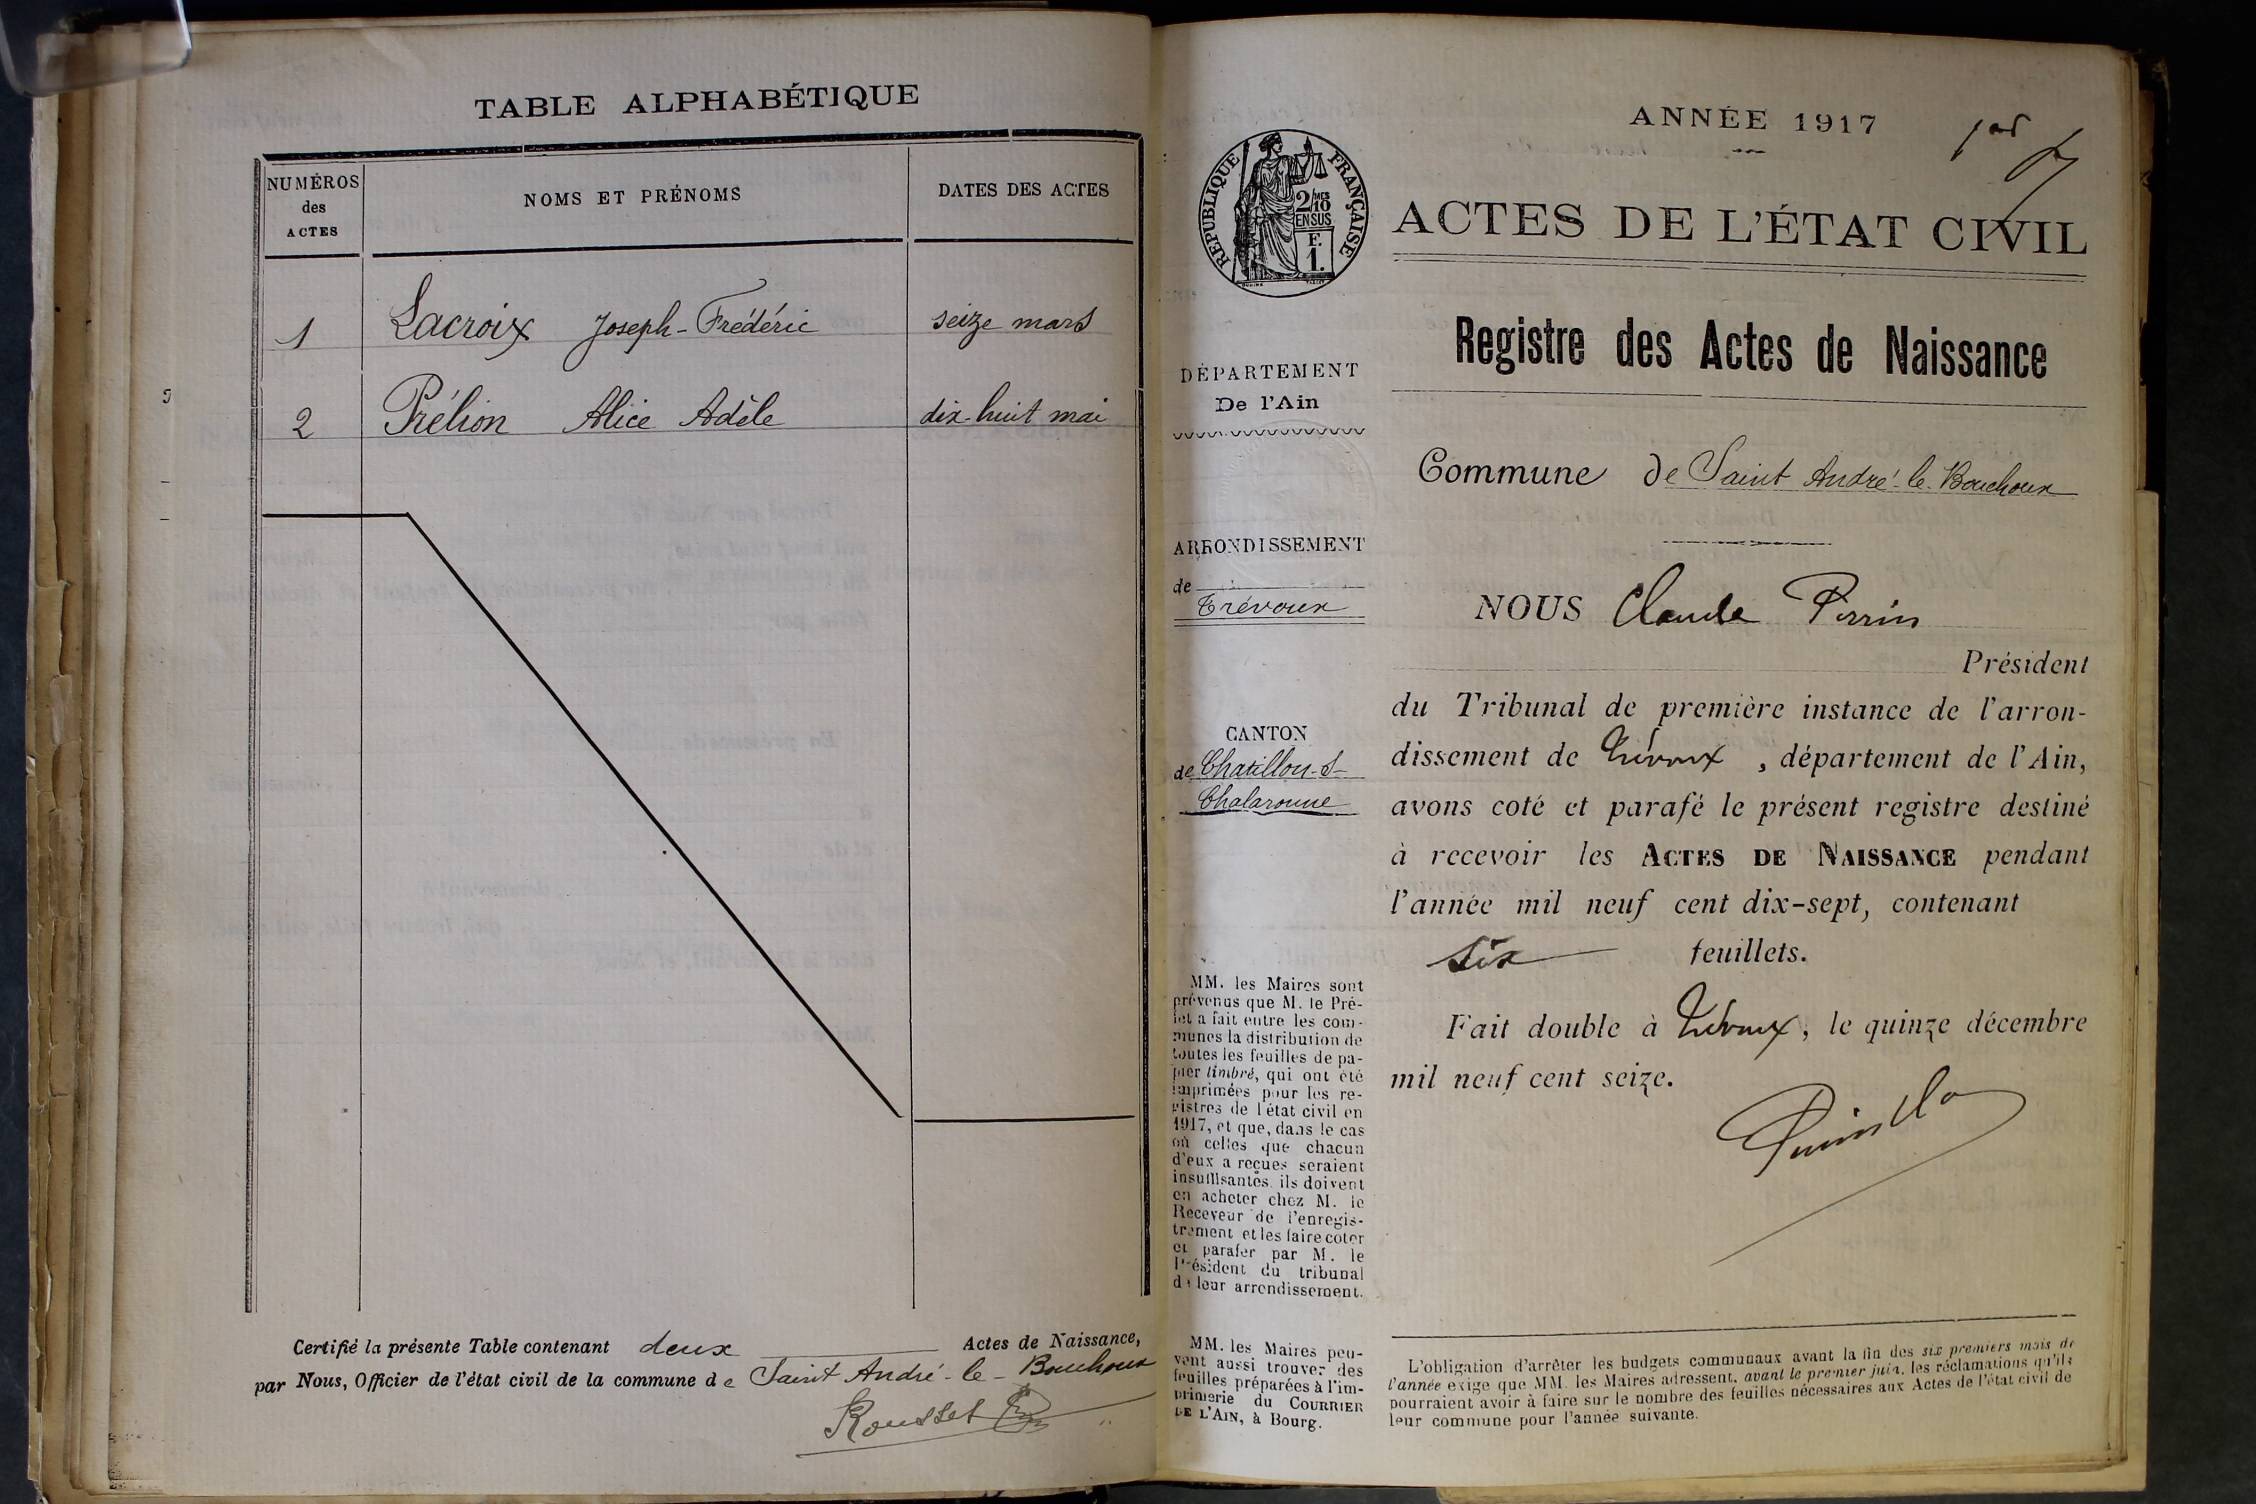 TABLE ALPHABÉTIQUE
NUMÉROS
des
ACTES
NOMS ET PRÉNOMS
DATES DES ACTES
1 Lacroix Joseph-Frédéric seize mars
2 Prélion Alice Adèle dix-huit mai
Certifié la présente Table contenant deux Actes de Naissance,
par Nous, Officier de l'état civil de la commune de Saint André-le-Bouchoux
Rousset
ANNÉE 1917
ACTES DE L'ÉTAT CIVIL
RÉPUBLIQUE FRANÇAISE
2/10 MES
EN SUS
F.
1.
Registre des Actes de Naissance
DÉPARTEMENT
De l'Ain
Commune de Saint André-le-Bouchoux
ARRONDISSEMENT
de
Trévoux
NOUS Claude Perrin
Président
du Tribunal de première instance de l'arron-
dissement de Trévoux, département de l'Ain,
avons coté et parafé le présent registre destiné
à recevoir les ACTES DE NAISSANCE pendant
l'année mil neuf cent dix-sept, contenant
six feuillets.
Fait double à Trévoux, le quinze décembre
mil neuf cent seize.
CANTON
de Chatillon-s-
Chalaronne
MM. les Maires sont
prévenus que M. le Pré-
fet a fait entre les com-
munes la distribution de
toutes les feuilles de pa-
pier timbré, qui ont été
imprimées pour les re-
gistres de l'état civil en
1917, et que, dans le cas
où celles que chacun
d'eux a reçues seraient
insuffisantes, ils doivent
en acheter chez M. le
Receveur de l'enregis-
trement et les faire coter
et parafer par M. le
Président du tribunal
de leur arrondissement.
MM. les Maires peu-
vent aussi trouver des
feuilles préparées à l'im-
primerie du COURRIER
DE L'AIN, à Bourg.
L'obligation d'arrêter les budgets communaux avant la fin des six premiers mois de
l'année exige que MM. les Maires adressent, avant le premier juin, les réclamations qu'ils
pourraient avoir à faire sur le nombre des feuilles nécessaires aux Actes de l'état civil de
leur commune pour l'année suivante.